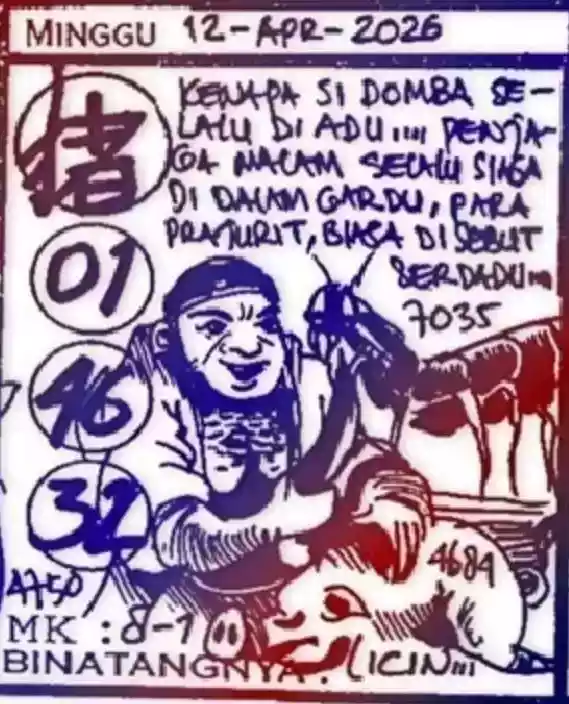 MINGGU 12-APR-2026
猪
KENAPA SI DOMBA SE-
LALU DI ADU.... PENJA-
GA MALAM SELALU SIAGA
DI DALAM GARDU, PARA
PRAJURIT, BIASA DI SEBUT
SERDADU....
7035
01
46
32
4684
A750
MK : 8-1
BINATANGNYA : LICIN...